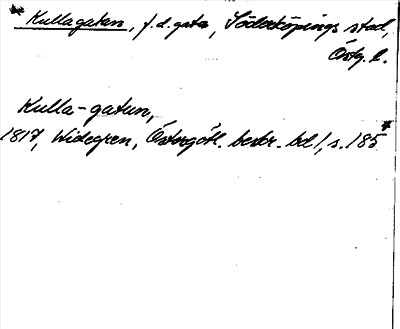 * Kullagatan, f.d. gata, Söderköpings stad,
Östg. l.
Kulla-gatun,
1817, Widegren, Östergötl. beskr. bd 1, s. 185 *